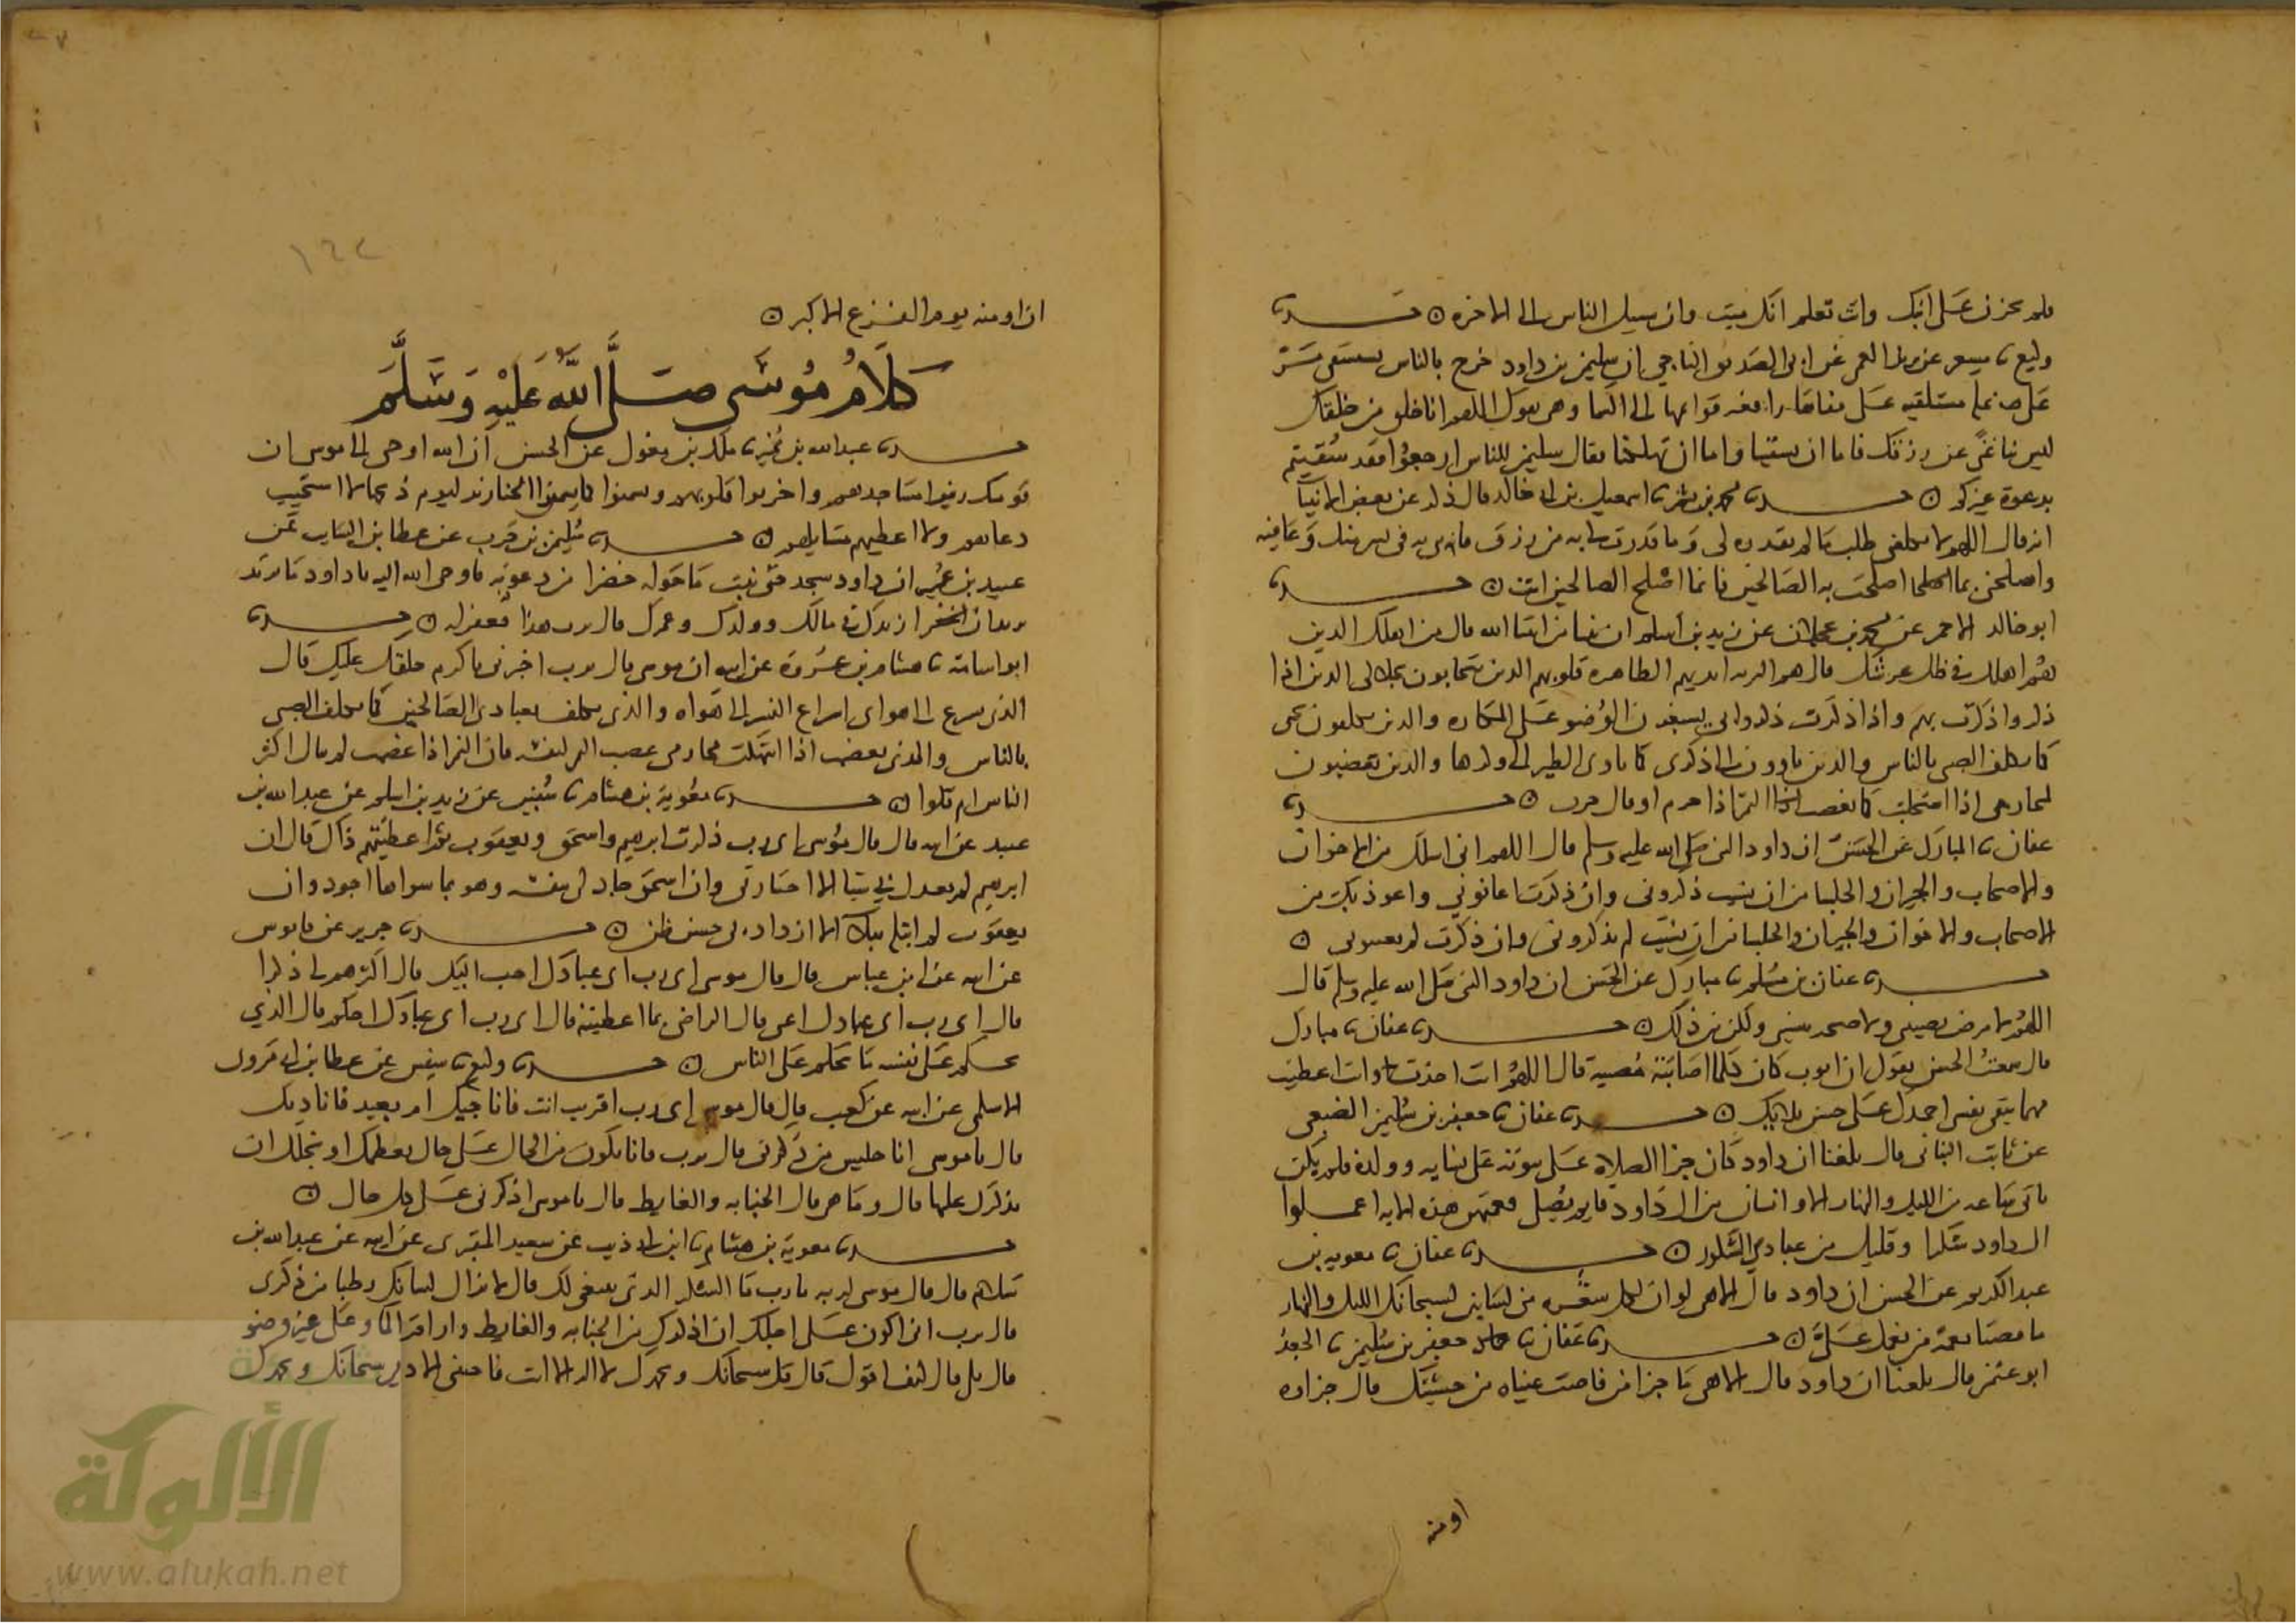 فلم تحزن على ابنك وانت تعلم انك ميت وان سبيل الناس الى الاخرة
وكيع مسعر عن زيد العمي عن ابي الصديق الناجي ان سليمن بن داود خرج بالناس يستسقي فمر
على نملة مستلقية على قفاها رافعة قوائمها الى السما وهي تقول اللهم انا خلق من خلقك
ليس بنا غنى عن رزقك فاما ان تسقينا واما ان تهلكنا فقال سليمن للناس ارجعوا فقد سقيتم
بدعوة غيركم محمد بن بشر اسمعيل بن ابي خالد قال ذكر عن بعض الانبيا
انه قال اللهم لا تكلفني طلب ما لم تقدره لي وما قدرت لي به من رزق فاتني به في يسر منك وعافية
واصلحني بما اصلحت به الصالحين فانما اصلح الصالحين انت
ابو خالد الاحمر عن محمد بن عجلان عن زيد بن اسلم ان نبيا من انبيا الله قال من اهلك الذين
هم اهلك في ظل عرشك قال هم البريه ايديهم الطاهره قلوبهم الذين يتحابون بجلالي الذين اذا
ذكروا ذكرت بهم واذا ذكرت ذكروا بي يسبغون الوضو على المكاره والذين يكلفون بحبي
كما يكلف الصبي بالناس والذين ياوون الى ذكري كما تاوي الطير الى وكرها والذين يغضبون
لمحارمي اذا استحلت كما يغضب النمر اذا حرم او قال حرب
عفان المبارك عن الحسن ان داود النبي صلى الله عليه وسلم قال اللهم اني اسلك من الاخوان
والاصحاب والجيران والجلسا من ان نسيت ذكروني وان ذكرت اعانوني واعوذ بك من
الاصحاب والاخوان والجيران والجلسا من ان نسيت لم يذكروني وان ذكرت لم يعينوني
عفان بن مسلم مبارك عن الحسن ان داود النبي صلى الله عليه وسلم قال
اللهم لا مرض يضنيني ولا صحة تنسيني ولكن بين ذلك عفان مبارك
قال سمعت الحسن يقول ان ايوب كان كلما اصابته مصيبة قال اللهم انت اخذت وانت اعطيت
مهما تبقي نفسي احمدك على حسن بلايك عفان جعفر بن سليمن الضبعي
عن ثابت البناني قال بلغنا ان داود كان جزا الصلاه على بيوته على نسايه وولده فلم يكن
تاتي ساعة من الليل والنهار الا وانسان من ال داود قايم يصلي فعمتهم هذه الايه اعملوا
ال داود شكرا وقليل من عبادي الشكور عفان معويه بن
عبد الكريم عن الحسن ان داود قال الاهي لو ان لكل شعره مني لسانين تسبحانك الليل والنهار
ما قضتا نعمة من نعمك علي عفان جعفر بن سليمن الجعد
ابو عثمن قال بلغنا ان داود قال الاهي ما جزا من فاضت عيناه من خشيتك قال جزاوه
اومنه
١٦٢
ان اومنه يوم الفزع الاكبر
كلام موسى صلى الله عليه وسلم
عبد الله بن نمير ملك بن مغول عن الحسن ان الله اوحى الى موسى ان
قومك زينوا مساجدهم واخربوا قلوبهم وسمنوا كما تسمن الخنازير ليوم ذبحها لا استجيب
دعاهم ولا اعطيهم مسايلهم سليمن بن حرب عن عطا بن السايب عن
عبيد بن عمير ان داود سجد حتى نبت ما حوله خضرا من دموعه فاوحى الله اليه يا داود ما تريد
تريد ان ازيدك في مالك وولدك وعمرك قال يرب هذا فغفر له
ابو اسامة هشام بن عروة عن ابيه ان موسى قال يرب اخبرني باكرم خلقك عليك قال
الذي يسرع الى هواي اسراع النسر الى هواه والذي يكلف بعبادي الصالحين كما يكلف الصبي
بالناس والذي يغضب اذا انتهكت محارمي غضب النمر لنفسه فان النمر اذا غضب لم يبال اكثر
الناس ام قلوا معوية بن هشام سفين عن زيد بن اسلم عن عبد الله بن
عبيد عن ابيه قال قال موسى اي رب ذكرت ابرهيم واسحق ويعقوب بم اعطيتهم ذاك قال ان
ابرهيم لم يعدل بي شيا الا اختارني وان اسحق جاد لي بنفسه وهو بما سواها اجود وان
يعقوب لم ابتله ببلا الا ازداد بي حسن ظن جرير عن قابوس
عن ابيه عن ابن عباس قال قال موسى اي رب اي عبادك احب اليك قال اكثرهم لي ذكرا
قال اي رب اي عبادك اغنى قال الراضي بما اعطيته قال اي رب اي عبادك احكم قال الذي
يحكم على نفسه ما يحكم على الناس وكيع سفين عن عطا بن ابي مرون
الاسلمي عن ابيه عن كعب قال قال موسى اي رب اقريب انت فاناجيك ام بعيد فاناديك
قال يا موسى انا جليس من ذكرني قال يرب فانا نكون من الحال على حال نعظمك او نجلك ان
نذكرك عليها قال وما هي قال الجنابه والغايط قال يا موسى اذكرني على كل حال
معوية بن هشام ابن ابي ذيب عن سعيد المقبري عن ابيه عن عبد الله بن
سلام قال قال موسى لربه يا رب ما الشكر الذي ينبغي لك قال لا يزال لسانك رطبا من ذكري
قال يرب اني اكون على اجلك ان اذكرك من الجنابه والغايط واراقة الما وعلى غير وضو
قال بلى قال كيف اقول قال قل سبحانك وبحمدك لا اله الا انت فاجنبني الاذى سبحانك وبحمدك
الألوكة
www.alukah.net